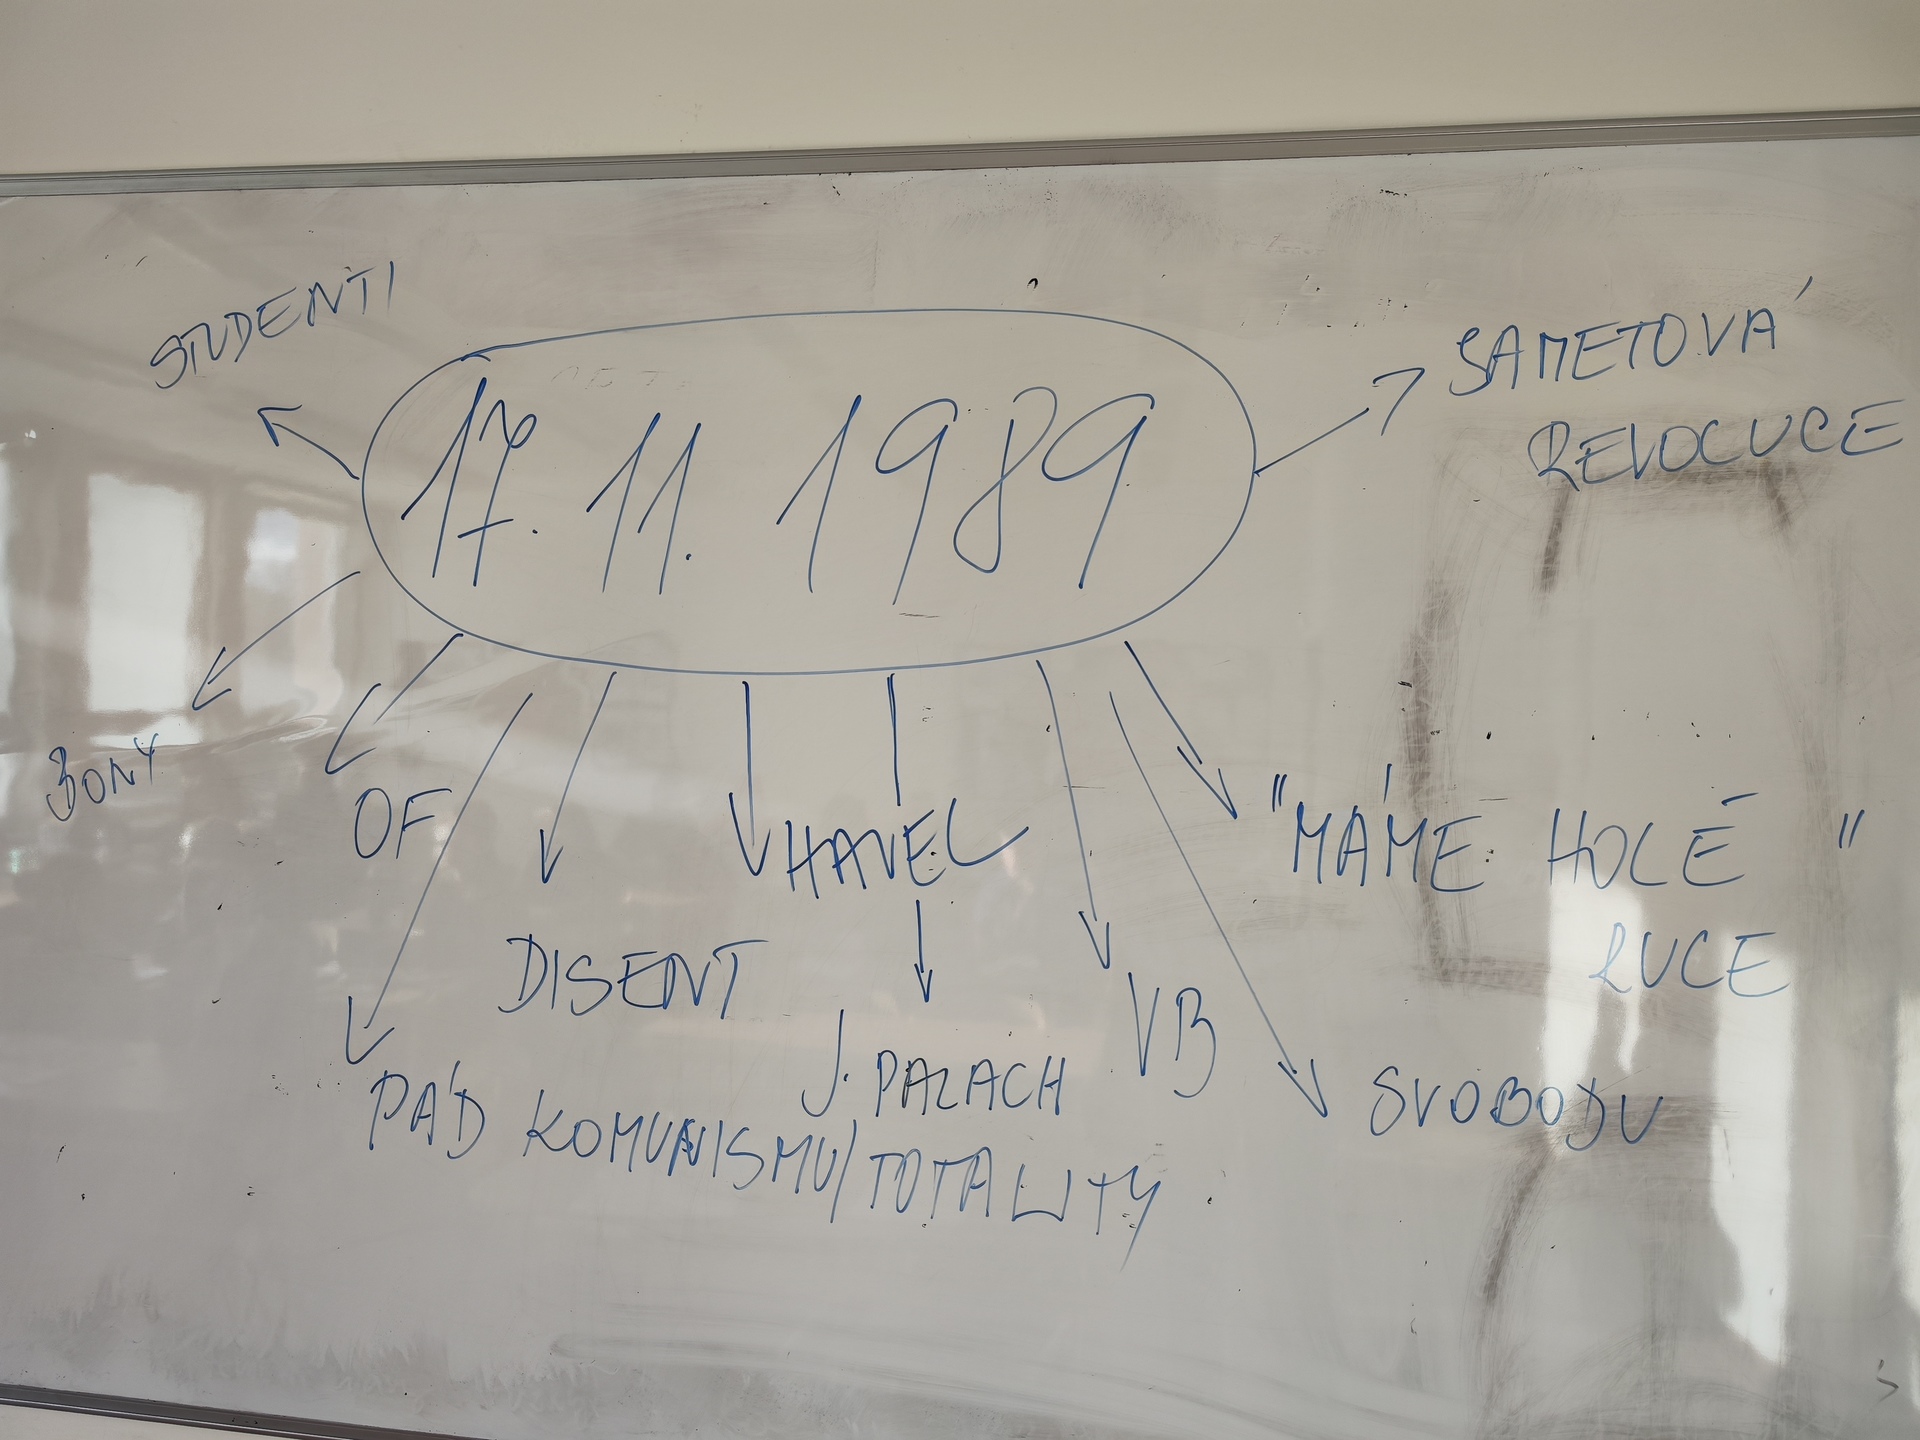 STUDENTI
17. 11. 1989
SAMETOVÁ
REVOLUCE
BONY
OF
HAVEL
"MÁME HOLÉ "
RUCE
DISENT
VB
J. PALACH
SVOBODU
PÁD KOMUNISMU/TOTALITY